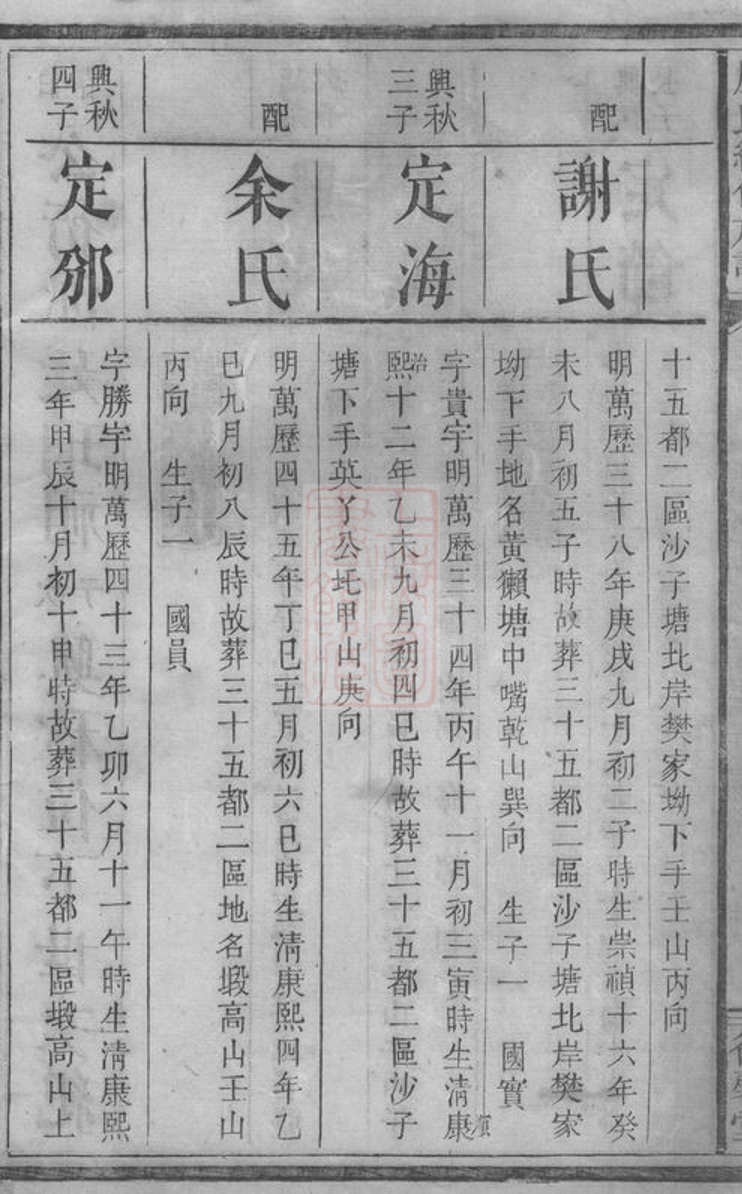 十五都二區沙子塘北岸樊家坳下手壬山丙向
配
謝氏
明萬歷三十八年庚戌九月初二子時生崇禎十六年癸
未八月初五子時故葬三十五都二區沙子塘北岸樊家
坳下手地名黃獺塘中嘴乾山巽向 生子一 國實
興秋
三子
定海
字貴宇明萬歷三十四年丙午十一月初三寅時生清康
熙十二年乙未九月初四巳時故葬三十五都二區沙子
塘下手英丫公圫甲山庚向
配
余氏
明萬歷四十五年丁巳五月初六巳時生清康熙四年乙
巳九月初八辰時故葬三十五都二區地名塅高山壬山
丙向 生子一 國員
興秋
四子
定邠
字勝宇明萬歷四十三年乙卯六月十一午時生清康熙
三年甲辰十月初十申時故葬三十五都二區塅高山上